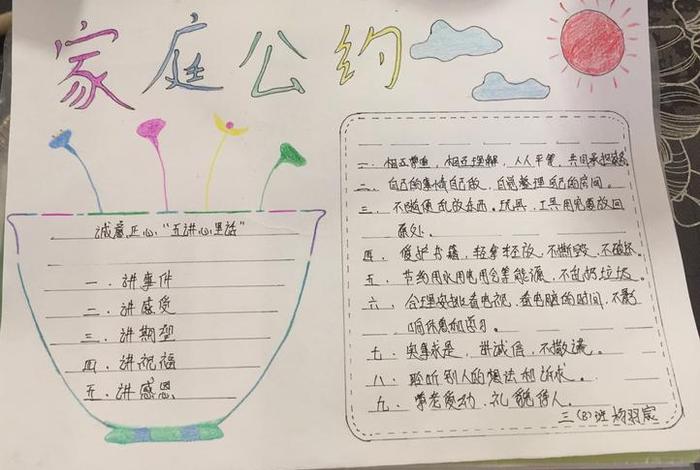 家庭公约
诚意正心，“五讲心里话”
一．讲事件
二．讲感受
三．讲期望
四．讲祝福
五．讲感恩
一．相互尊重，相互理解，人人平等，共同承担家务
二．自己的事情自己做，自觉整理自己的房间。
三．不随便乱放东西。玩具，工具用完要放回
原处。
四．爱护书籍，轻拿轻放，不撕毁，不破坏。
五．节约用水用电用气等能源，不乱扔垃圾。
六．合理安排看电视，看电脑的时间，不影
响休息和学习。
七．实事求是，讲诚信，不撒谎。
八．聆听别人的想法和诉求。
九．尊老爱幼，礼貌待人。
三（8）班 杨羽宸